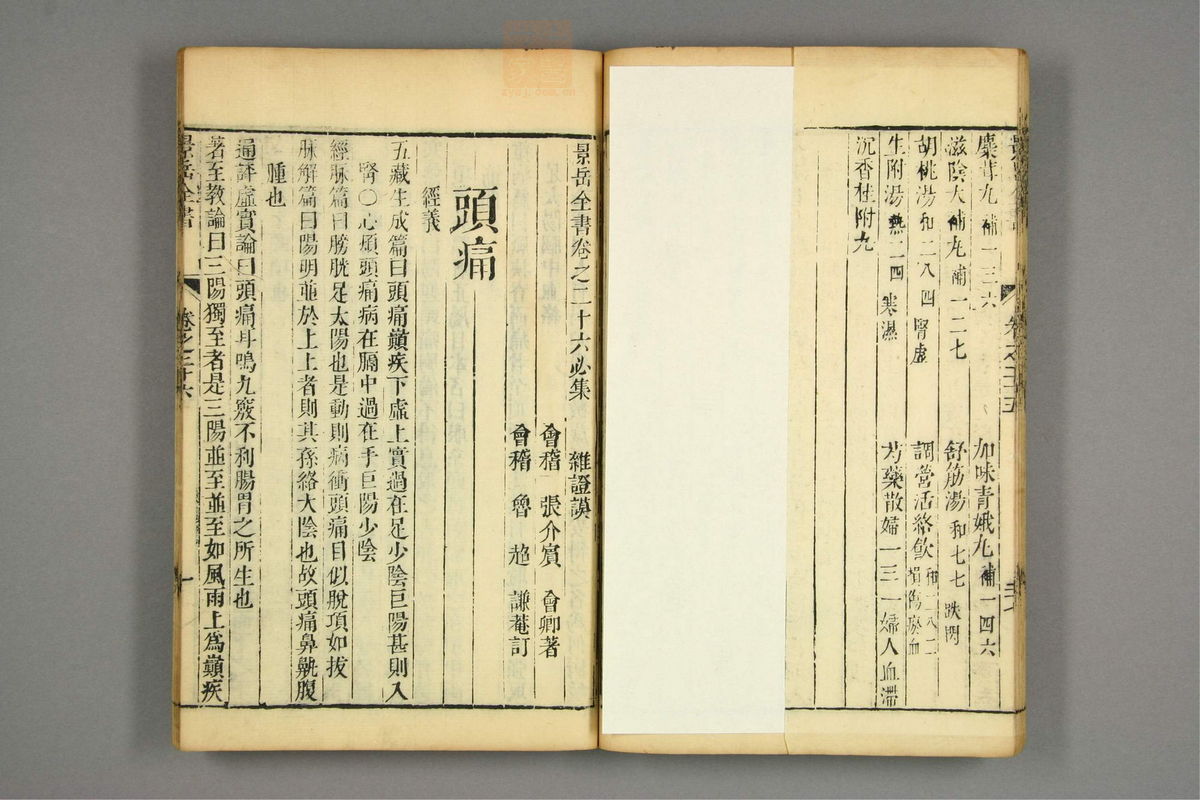 麋茸丸 補一三六
加味青娥丸 補一四六
滋陰大補丸 補一二七
舒筋湯 和七七 跌閃
胡桃湯 和二八四 腎虛
調營活絡飲 和二八二 損傷瘀血
生附湯 熱一四 寒濕
芍藥散 婦一三一 婦人血滯
沉香桂附丸
卷之二十五
景岳全書卷之二十六必集 雜證謨
會稽 張介賓 會卿著
會稽 魯 超 謙菴訂
頭痛
經義
五藏生成篇曰頭痛巔疾下虛上實過在足少陰巨陽甚則入
腎〇心煩頭痛病在膈中過在手巨陽少陰
經脉篇曰膀胱足太陽也是動則病衝頭痛目似脫項如拔
脉解篇曰陽明並於上上者則其孫絡太陰也故頭痛鼻鼽腹
腫也
通評虛實論曰頭痛耳鳴九竅不利腸胃之所生也
著至教論曰三陽獨至者是三陽並至並至如風雨上為巔疾
景岳全書 卷之二十六 一
zysj.com.cn